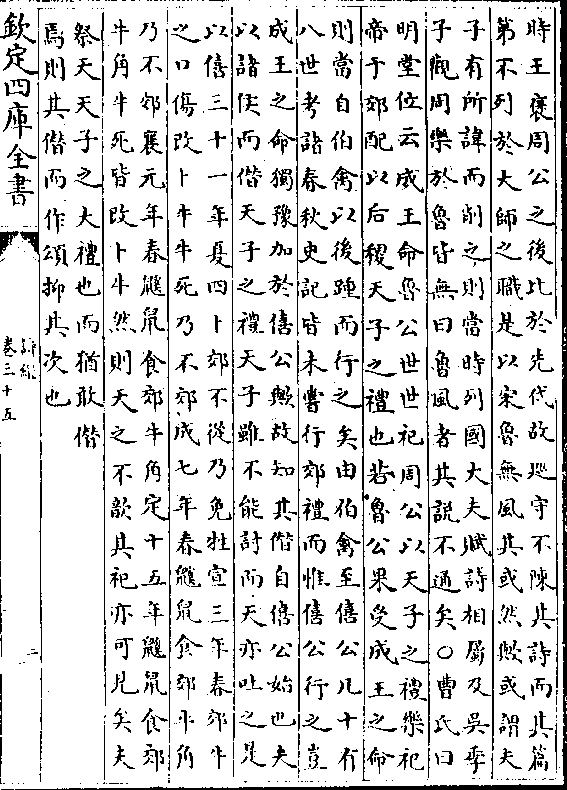 時王褒周公之後比於先代故巡守不陳其詩而其篇
第不列於大師之職是以宋魯無風其或然歟或謂夫
子有所諱而削之則當時列國大夫賦詩相屬及吳季
子觀周樂於魯皆無曰魯風者其說不通矣○曹氏曰
明堂位云成王命魯公世世祀周公以天子之禮樂祀
帝于郊配以后稷天子之禮也若魯公果受成王之命
則當自伯禽以後踵而行之矣由伯禽至僖公凡十有
八世考諸春秋史記皆未嘗行郊禮而惟僖公行之豈
成王之命獨豫加於僖公歟故知其僭自僖公始也夫
以諸侯而僭天子之禮天子雖不能討而天亦吐之是
以僖三十一年夏四卜郊不從乃免牲宣三年春郊牛
之口傷改卜牛牛死乃不郊成七年春鼷鼠食郊牛角
乃不郊襄元年春鼷鼠食郊牛角定十五年鼷鼠食郊
牛角牛死皆改卜牛然則天之不歆其祀亦可見矣夫
祭天天子之大禮也而猶敢僭
焉則其僭而作頌抑其次也
欽定四庫全書
詩緝
卷三十五
二